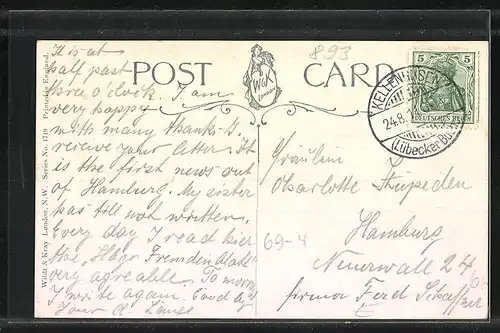 It is at
half past
three o'clock. I am
very happy
with many thanks to
receive your letter. It
is the first news out
of Hamburg. My sister
has till not written.
Every day I read hier
the "Hbgr Fremden Blatt"
very agreable. To morrow
I write again.
Your
POST CARD
W&K
London
893
5 5
DEUTSCHES REICH
KELLENHUSEN
24.8.
(Lübecker
Fräulein
Charlotte Stupeden
Hamburg
Neuerwall 24
firma Ferd
69-4
Wildt & Kray London, N.W. Series No. 1719 Printed in England.